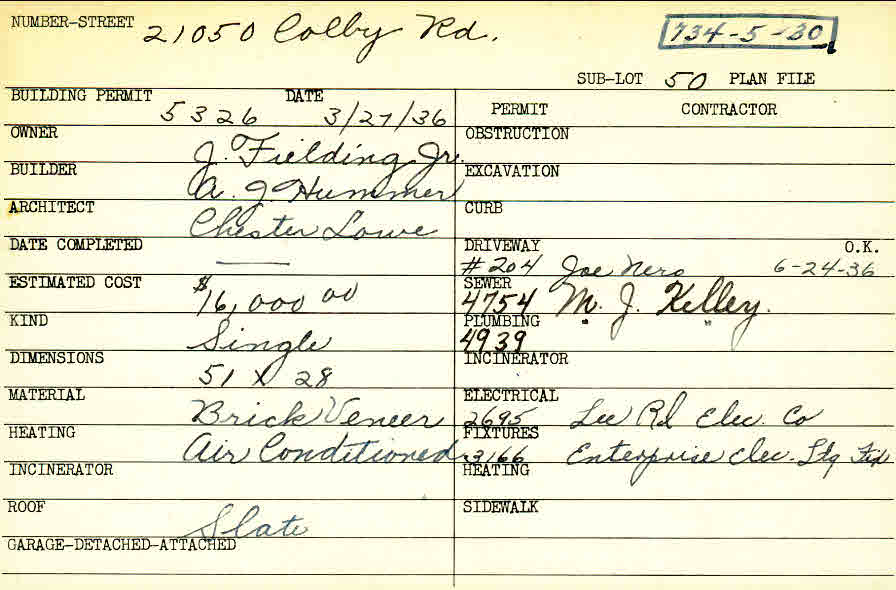 NUMBER-STREET 21050 Colby Rd. 734-5-30
SUB-LOT 50 PLAN FILE
BUILDING PERMIT 5326 DATE 3/27/36
PERMIT CONTRACTOR
OWNER J. Fielding Jr.
OBSTRUCTION
BUILDER A. J. Hummer
EXCAVATION
ARCHITECT Chester Lowe
CURB
DATE COMPLETED ——
DRIVEWAY O.K.
#204 Joe Nero 6-24-36
ESTIMATED COST $16,000 00
SEWER
4754 M. J. Kelley.
KIND Single
PLUMBING " "
4939
DIMENSIONS 51 X 28
INCINERATOR
MATERIAL Brick Veneer
ELECTRICAL
2695 Lee Rd Elec. Co
HEATING Air Conditioned
FIXTURES
3166 Enterprise Elec. Ltg Fix
INCINERATOR
HEATING
ROOF Slate
SIDEWALK
GARAGE-DETACHED-ATTACHED